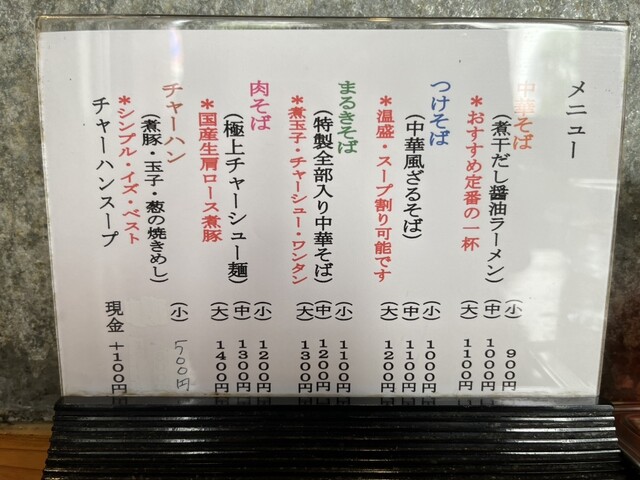 メニュー
中華そば
(煮干だし醤油ラーメン)
*おすすめ定番の一杯
(小) 900円
(中) 1000円
(大) 1100円
つけそば
(中華風ざるそば)
*温盛・スープ割り可能です
(小) 1000円
(中) 1100円
(大) 1200円
まるきそば
(特製全部入り中華そば)
*煮玉子・チャーシュー・ワンタン
(小) 1100円
(中) 1200円
(大) 1300円
肉そば
(極上チャーシュー麺)
*国産生肩ロース煮豚
(小) 1200円
(中) 1300円
(大) 1400円
チャーハン
(煮豚・玉子・葱の焼きめし)
*シンプル・イズ・ベスト
(小) 500円
チャーハンスープ
現金 +100円